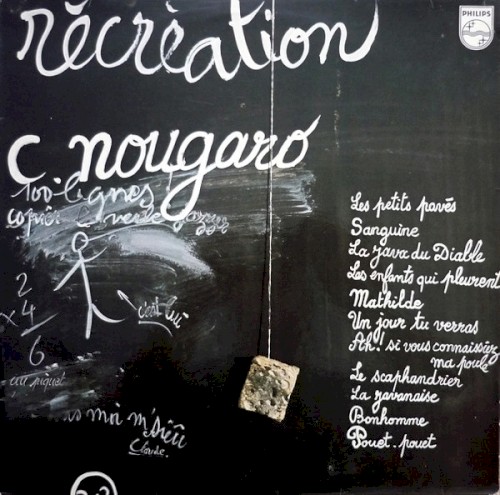 récréation
PHILIPS
C nougaro
100 lignes
copier le verbe
2
x 4
6
au piquet
c'est lui
Les petits pavés
Sanguine
La java du Diable
Les enfants qui pleurent
Mathilde
Un jour tu verras
Ah! si vous connaissiez
ma poule
Le scaphandrier
La javanaise
Bonhomme
Pouet-pouet
moi m'sieu
Claude.